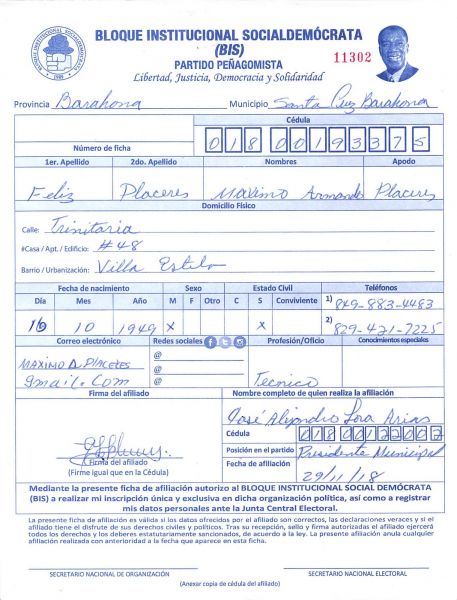 BLOQUE INSTITUCIONAL SOCIALDEMÓCRATA
(BIS)
PARTIDO PEÑAGOMISTA
Libertad, Justicia, Democracia y Solidaridad
11302
Provincia Barahona Municipio Santa Cruz Barahona
Cédula
Número de ficha 018 0019337 5
1er. Apellido 2do. Apellido Nombres Apodo
Feliz Placeres Maximo Armando Placeres
Domicilio Físico
Calle: Trinitaria
#Casa / Apt. / Edificio: #48
Barrio / Urbanización: Villa Estela
Fecha de nacimiento Sexo Estado Civil Teléfonos
Día Mes Año M F Otro C S Conviviente 1) 849-883-4483
16 10 1949 X X 2) 829-421-7225
Correo electrónico Redes sociales Profesión/Oficio Conocimientos especiales
MAXIMO A. PLACERES @
gmail.com @
@ Tecnico
Firma del afiliado Nombre completo de quien realiza la afiliación
José Alejandro Lora Arias
Cédula
Posición en el partido Presidente Municipal
Firma del afiliado
(Firme igual que en la Cédula)
Fecha de afiliación 29/11/18
Mediante la presente ficha de afiliación autorizo al BLOQUE INSTITUCIONAL SOCIAL DEMÓCRATA
(BIS) a realizar mi inscripción única y exclusiva en dicha organización política, así como a registrar
mis datos personales ante la Junta Central Electoral.
La presente ficha de afiliación es válida si los datos ofrecidos por el afiliado son correctos, las declaraciones veraces y si el
afiliado tiene el disfrute de sus derechos civiles y políticos. Tras su recepción, sello y firma autorizadas el afiliado ejercerá
todos los derechos y los deberes estatutariamente sancionados, de acuerdo a la ley. La presente afiliación anula cualquier
afiliación realizada con anterioridad a la fecha que aparece en esta ficha.
SECRETARIO NACIONAL DE ORGANIZACIÓN SECRETARIO NACIONAL ELECTORAL
(Anexar copia de cédula del afiliado)